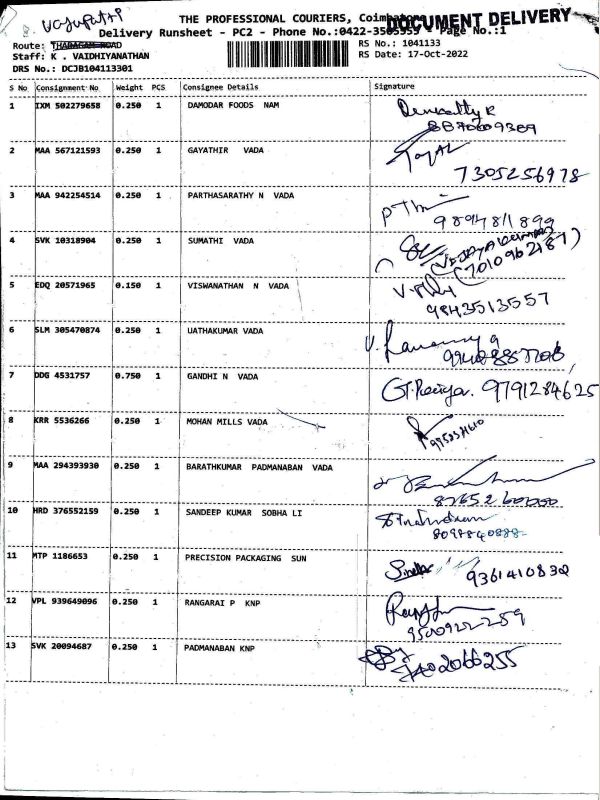 vayupathi
THE PROFESSIONAL COURIERS, Coimbatore
DOCUMENT DELIVERY
Delivery Runsheet - PC2 - Phone No.:0422-3505555 - Page No.:1
Route: THADAGAM ROAD
RS No.: 1041133
Staff: K . VAIDHIYANATHAN
RS Date: 17-Oct-2022
DRS No.: DCJB104113301
S No Consignment No Weight PCS Consignee Details Signature
1 IXM 502279658 0.250 1 DAMODAR FOODS NAM
8870609389
2 MAA 567121593 0.250 1 GAYATHIR VADA
7305256978
3 MAA 942254514 0.250 1 PARTHASARATHY N VADA
9894811899
4 SVK 10318904 0.250 1 SUMATHI VADA
(7010962187)
5 EDQ 20571965 0.150 1 VISWANATHAN N VADA
9843513557
6 SLM 305470874 0.250 1 UATHAKUMAR VADA
7 DDG 4531757 0.750 1 GANDHI N VADA
G.T.Reniya. 9791284625
8 KRR 5536266 0.250 1 MOHAN MILLS VADA
9 MAA 294393930 0.250 1 BARATHKUMAR PADMANABAN VADA
10 HRD 376552159 0.250 1 SANDEEP KUMAR SOBHA LI
8098840888
11 MTP 1186653 0.250 1 PRECISION PACKAGING SUN
9361410832
12 VPL 939649096 0.250 1 RANGARAI P KNP
9500922259
13 SVK 20094687 0.250 1 PADMANABAN KNP